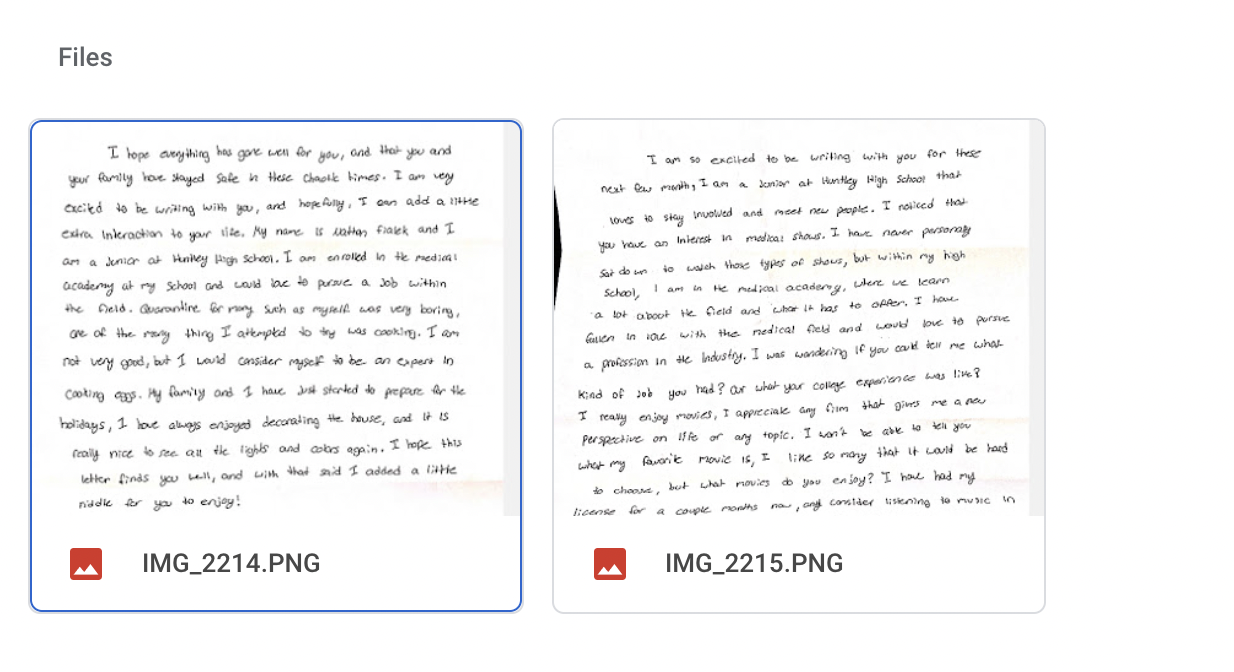 Files
I hope everything has gone well for you, and that you and
your family have stayed safe in these chaotic times. I am very
excited to be writing with you, and hopefully, I can add a little
extra interaction to your life. My name is fialek and I
am a Junior at Huntley High School. I am enrolled in the medical
academy at my school and would love to pursue a Job within
the field. Quarantine for many such as myself was very boring,
one of the many thing I attempted to try was cooking. I am
not very good, but I would consider myself to be an expert in
cooking eggs. My family and I have Just started to prepare for the
holidays, I have always enjoyed decorating the house, and it is
really nice to see all the lights and colors again. I hope this
letter finds you well, and with that said I added a little
riddle for you to enjoy!
IMG_2214.PNG
I am so excited to be writing with you for these
next few month, I am a Junior at Huntley High School that
loves to stay involved and meet new people. I noticed that
you have an interest in medical shows. I have never personally
sat down to watch those types of shows, but within my high
School, I am in the medical academy, where we learn
a lot about the field and what it has to offer. I have
fallen in love with the medical field and would love to pursue
a profession in the Industry. I was wondering if you could tell me what
kind of Job you had? Or what your college experience was like?
I really enjoy movies, I appreciate any film that gives me a new
perspective on life or any topic. I won't be able to tell you
what my favorite movie is, I like so many that it would be hard
to choose, but what movies do you enjoy? I have had my
license for a couple months now, and consider listening to music in
IMG_2215.PNG